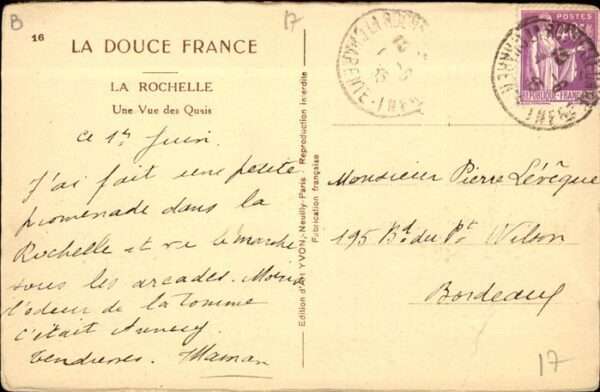 B
17
16
LA DOUCE FRANCE
LA ROCHELLE
Une Vue des Quais
ce 1er Juin.
J'ai fait une petite
promenade dans la
Rochelle et vu le marché
sous les arcades. Moins
l'odeur de la tomme
c'était Annecy.
Tendresses. Maman
Edition d'Art YVON, Neuilly Paris - Reproduction interdite
Fabrication française
POSTES
RÉPUBLIQUE FRANÇAISE
Monsieur Pierre Lévêque
195 Bd. du Pt Wilson
Bordeaux
17